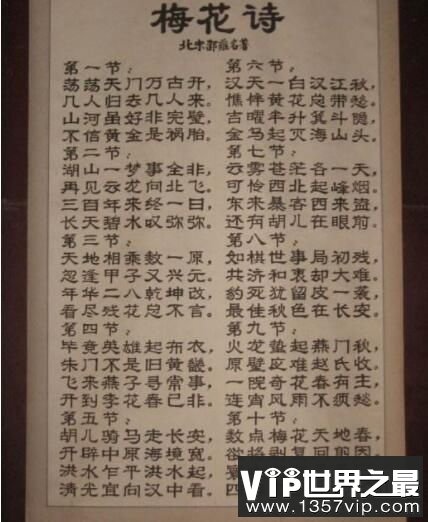 梅花诗
北宋邵雍名著
第一节：
荡荡天门万古开，
几人归去几人来。
山河虽好非完璧，
不信黄金是祸胎。
第二节：
湖山一梦事全非，
再见云花向北飞。
三百年来终一日，
长天碧水叹弥弥。
第三节：
天地相乘数一原，
忽逢甲子又兴元。
年华二八乾坤改，
看尽残花总不言。
第四节：
毕竟英雄起布衣，
朱门不是旧黄畿。
飞来燕子寻常事，
开到李花春已非。
第五节：
胡儿骑马走长安，
开辟中原海境宽。
洪水乍平洪水起，
清光宜向汉中看。
第六节：
汉天一白汉江秋，
憔悴黄花总带愁。
吉曜半升箕斗隐，
金马起灭海山头。
第七节：
云雾苍茫各一天，
可怜西北起峰烟。
东来暴客西来盗，
还有胡儿在眼前。
第八节：
如棋世事局初残，
共济和衷却大难。
豹死犹留皮一袭，
最佳秋色在长安。
第九节：
火龙蛰起燕门秋，
原璧应难赵氏收。
一院奇花春有主，
连宵风雨不须愁。
第十节：
数点梅花天地春，
欲将剥复问前因。
四
VIP世界之最
www.1357vip.com